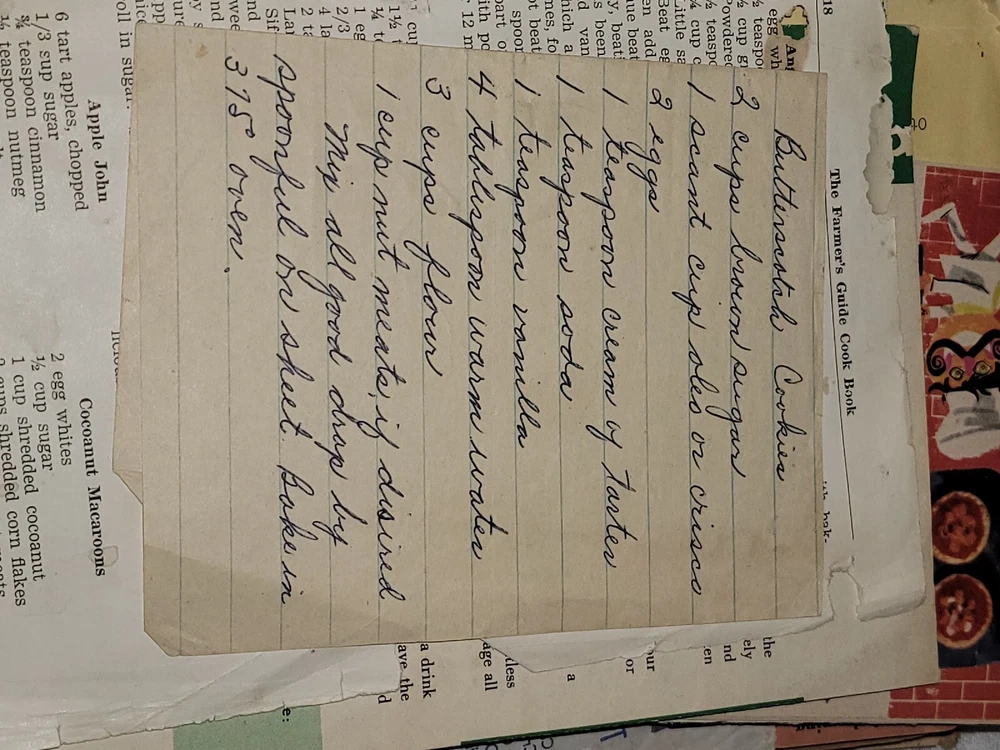 Butterscotch Cookies
2 cups brown sugar
1 scant cup oleo or crisco
2 eggs
1 teaspoon cream of tarter
1 teaspoon soda
1 teaspoon vanilla
4 tablespoon warm water
3 cups flour
1 cup nut meats, if disired
Mix all good drop by
spoonful on sheet. Bake in
375° oven.
The Farmer's Guide Cook Book
18
40
Apple John
6 tart apples, chopped
1/3 sup sugar
¾ teaspoon cinnamon
teaspoon nutmeg
Cocoanut Macaroons
2 egg whites
½ cup sugar
1 cup shredded cocoanut
cups shredded corn flakes
roll in sugar.
a drink
ave the
age all
or
a
the
ely
nd